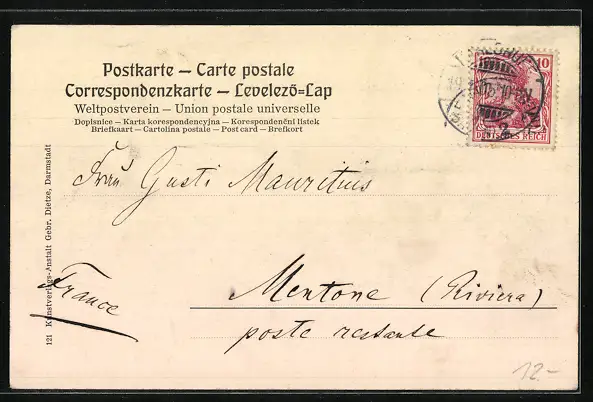 Postkarte — Carte postale
Correspondenzkarte — Levelező=Lap
Weltpostverein — Union postale universelle
Dopisnice — Karta korespondencyjna — Korespondenční listek
Briefkaart — Cartolina postale — Post card — Brefkort
10
DEUTSCHES REICH
Frau Gusti Mauritius
Mentone (Riviera)
poste restante
France
121 Kunstverlags-Anstalt Gebr. Dietze, Darmstadt
12.-